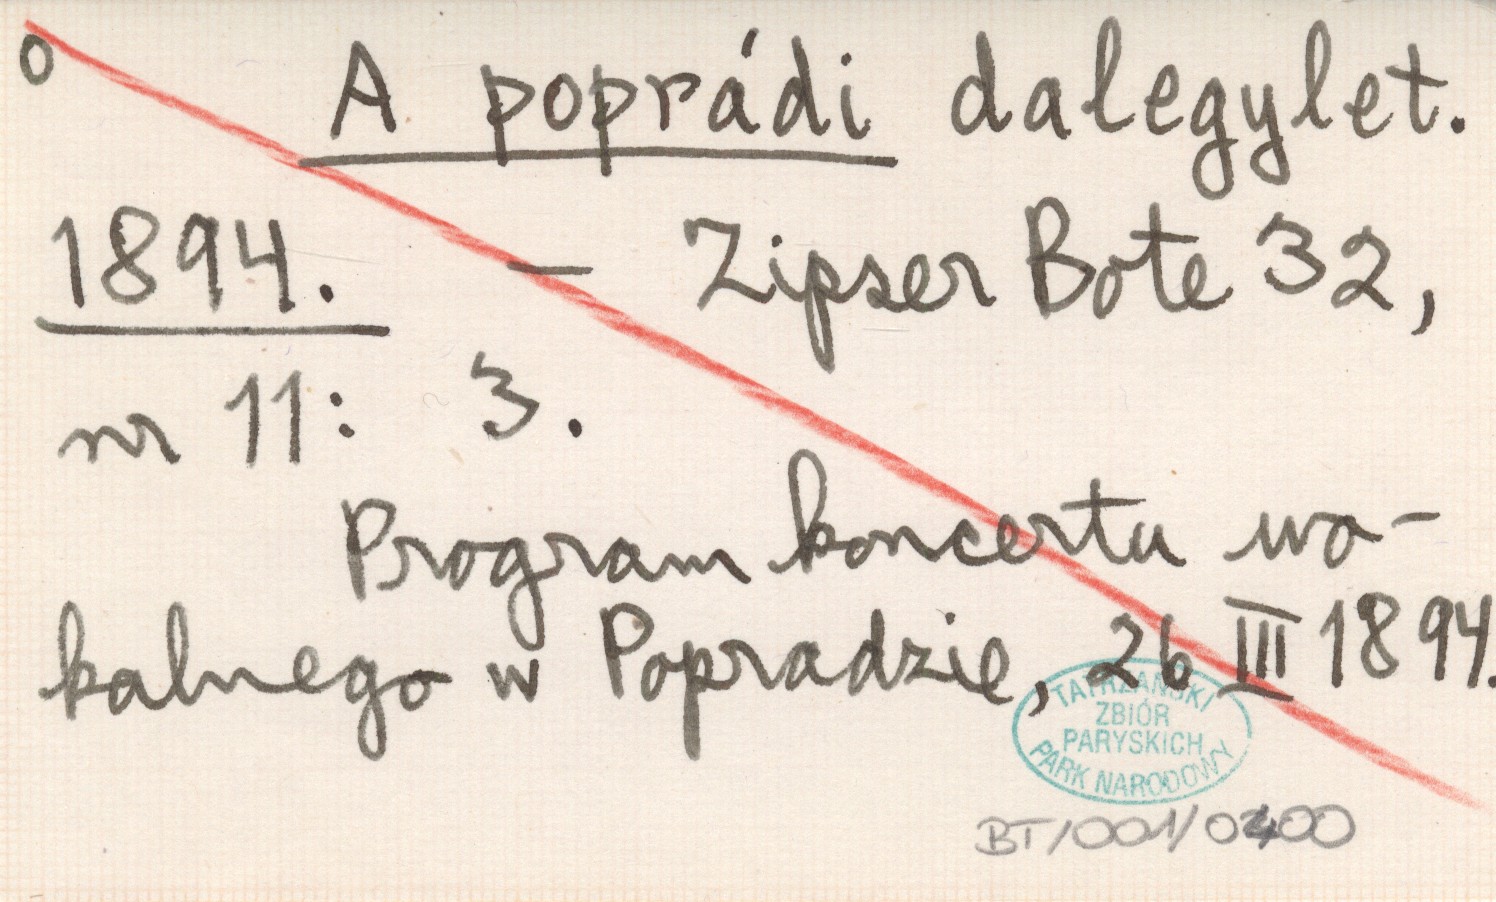 o
A poprádi dalegylet.
1894. — Zipser Bote 32,
nr 11: 3.
Program koncertu wo-
kalnego w Popradzie, 26 III 1894.
TATRZAŃSKI
ZBIÓR
PARYSKICH
PARK NARODOWY